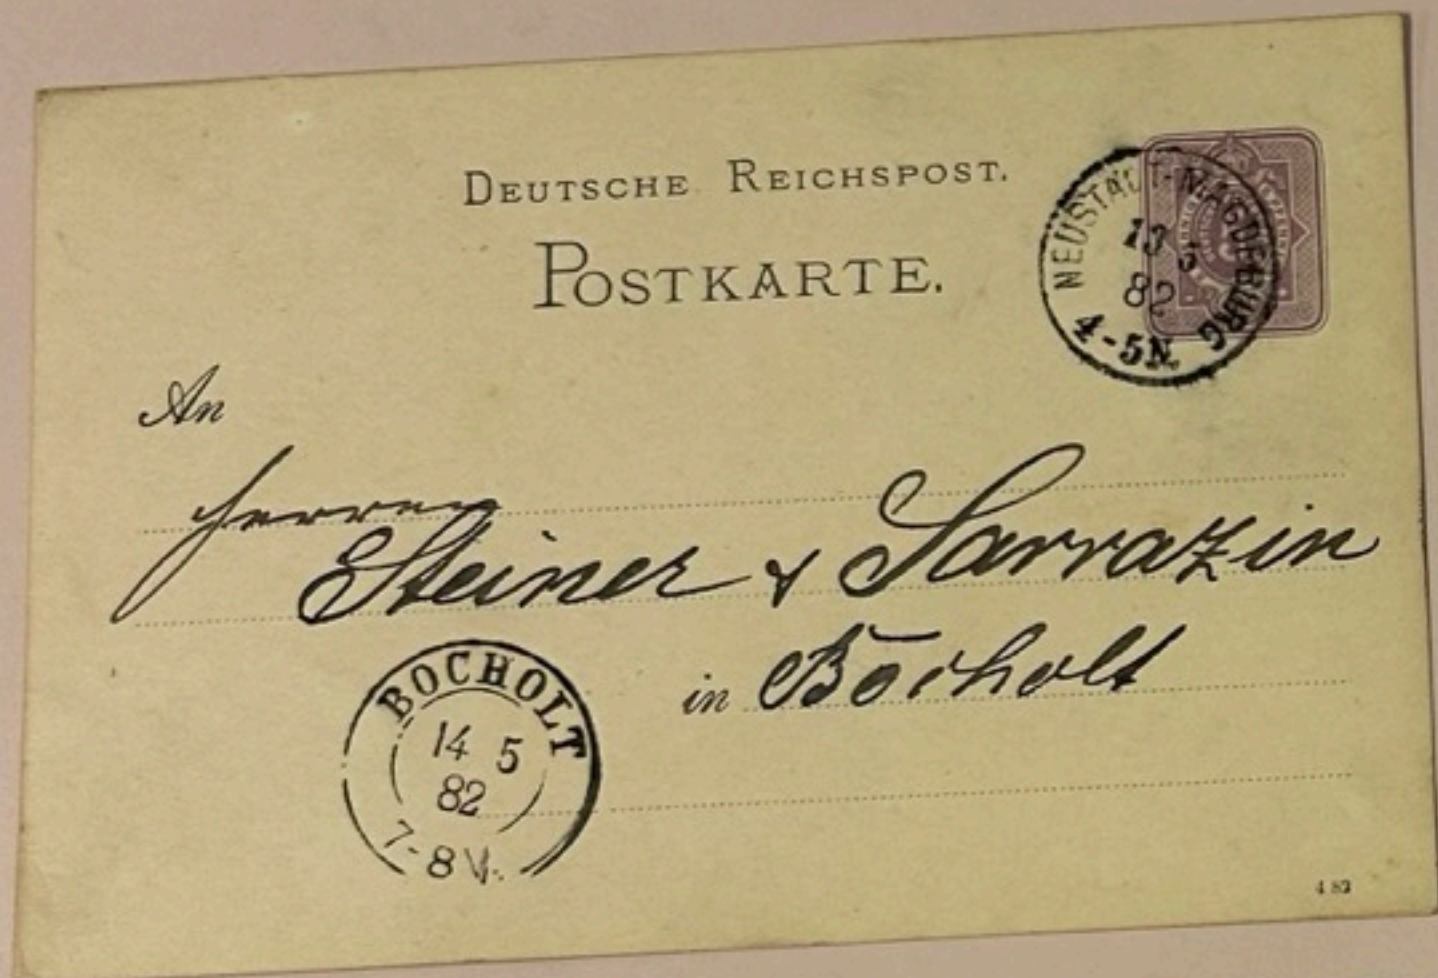 DEUTSCHE REICHSPOST.
POSTKARTE.
NEUSTADT-MAGDEBURG
13 5
82
4-5N.
An
Herren
Steiner & Sarrazin
in Bocholt
BOCHOLT
14 5
82
7-8 V.
4 82